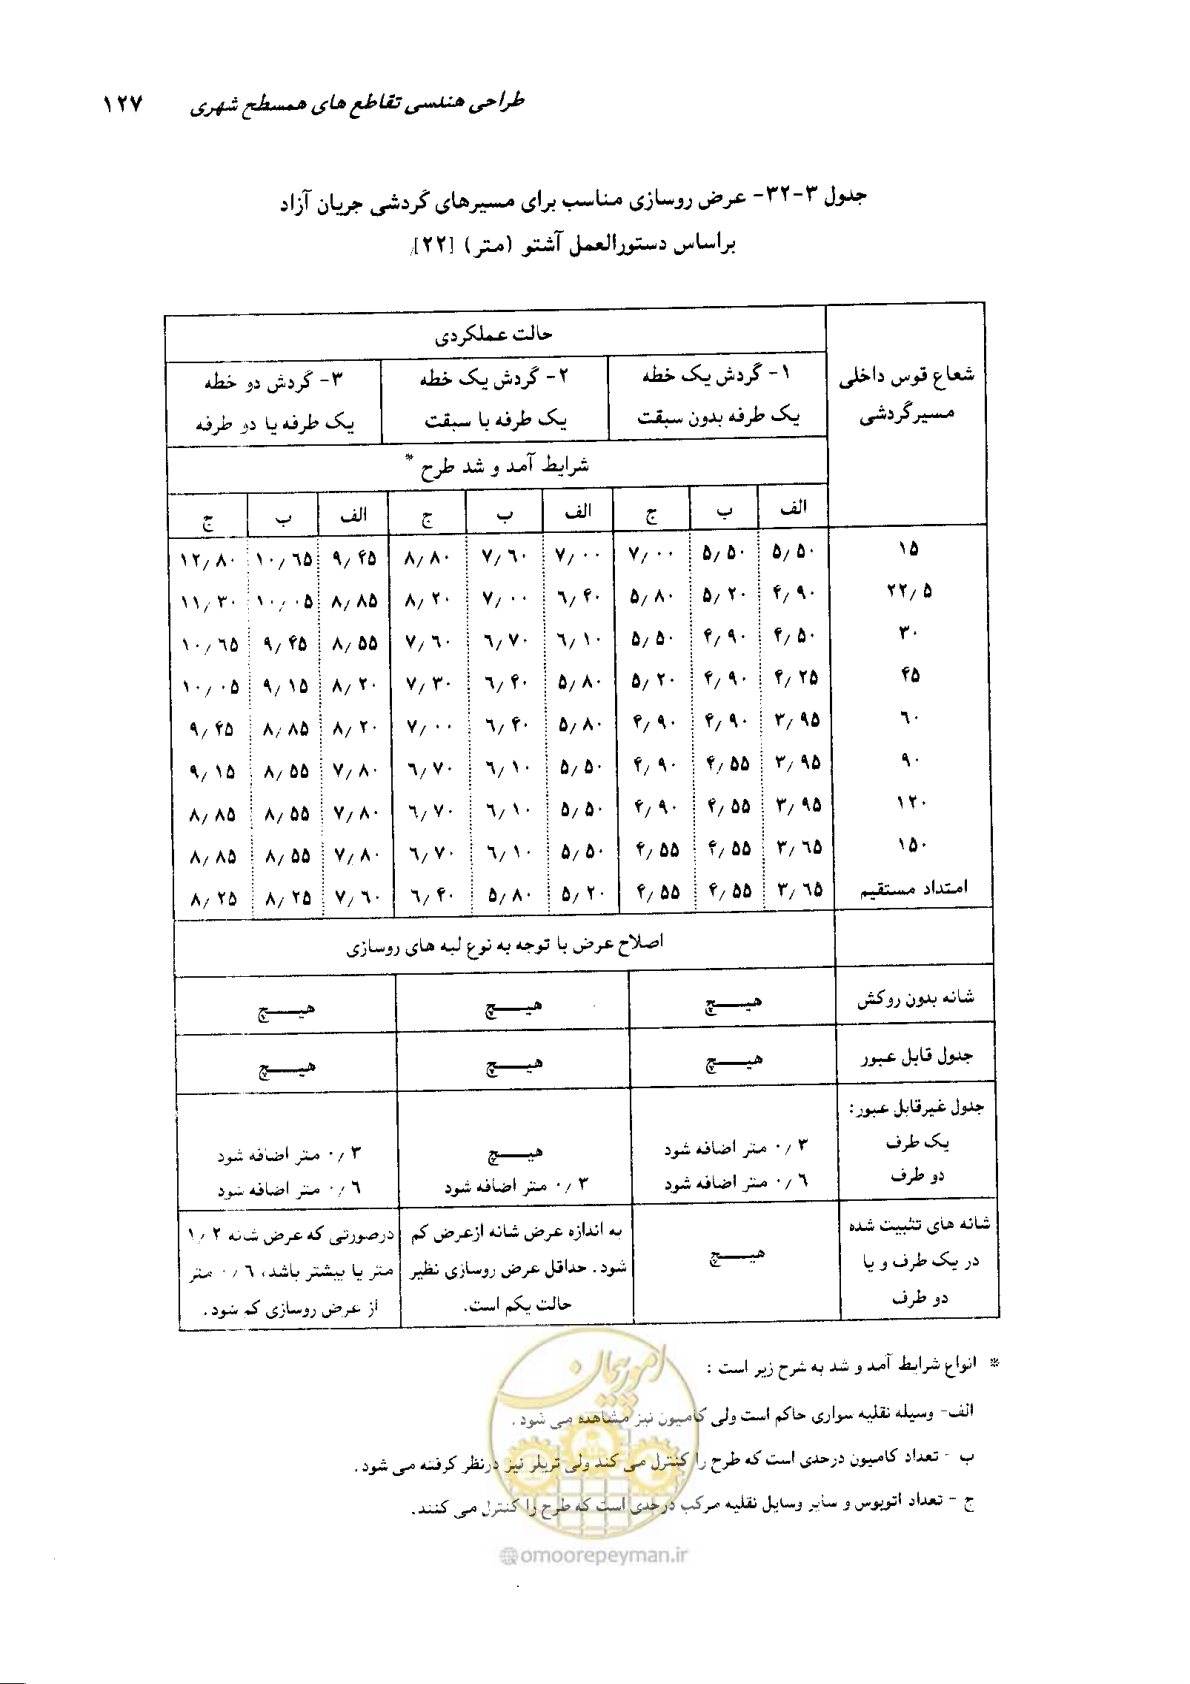 طراحی هندسی تقاطع های همسطح شهری ۱۲۷
جدول ۳-۳۲- عرض روسازی مناسب برای مسیرهای گردشی جریان آزاد
براساس دستورالعمل آشتو (متر) [۲۲]
شعاع قوس داخلی مسیرگردشی
حالت عملکردی
۱- گردش یک خطه یک طرفه بدون سبقت
۲- گردش یک خطه یک طرفه با سبقت
۳- گردش دو خطه یک طرفه یا دو طرفه
شرایط آمد و شد طرح *
الف ب ج الف ب ج الف ب ج
۱۵ ۵/۵۰ ۵/۵۰ ۷/۰۰ ۷/۰۰ ۷/۶۰ ۸/۸۰ ۹/۴۵ ۱۰/۶۵ ۱۲/۸۰
۲۲/۵ ۴/۹۰ ۵/۲۰ ۵/۸۰ ۶/۴۰ ۷/۰۰ ۸/۲۰ ۸/۸۵ ۱۰/۰۵ ۱۱/۳۰
۳۰ ۴/۵۰ ۴/۹۰ ۵/۵۰ ۶/۱۰ ۶/۷۰ ۷/۶۰ ۸/۵۵ ۹/۴۵ ۱۰/۶۵
۴۵ ۴/۲۵ ۴/۹۰ ۵/۲۰ ۵/۸۰ ۶/۴۰ ۷/۳۰ ۸/۲۰ ۹/۱۵ ۱۰/۰۵
۶۰ ۳/۹۵ ۴/۹۰ ۴/۹۰ ۵/۸۰ ۶/۴۰ ۷/۰۰ ۸/۲۰ ۸/۸۵ ۹/۴۵
۹۰ ۳/۹۵ ۴/۵۵ ۴/۹۰ ۵/۵۰ ۶/۱۰ ۶/۷۰ ۷/۸۰ ۸/۵۵ ۹/۱۵
۱۲۰ ۳/۹۵ ۴/۵۵ ۴/۹۰ ۵/۵۰ ۶/۱۰ ۶/۷۰ ۷/۸۰ ۸/۵۵ ۸/۸۵
۱۵۰ ۳/۶۵ ۴/۵۵ ۴/۵۵ ۵/۵۰ ۶/۱۰ ۶/۷۰ ۷/۸۰ ۸/۵۵ ۸/۸۵
امتداد مستقیم ۳/۶۵ ۴/۵۵ ۴/۵۵ ۵/۲۰ ۵/۸۰ ۶/۴۰ ۷/۶۰ ۸/۲۵ ۸/۲۵
اصلاح عرض با توجه به نوع لبه های روسازی
شانه بدون روکش هیـــچ هیـــچ هیـــچ
جدول قابل عبور هیـــچ هیـــچ هیـــچ
جدول غیرقابل عبور:
یک طرف ۰/۳ متر اضافه شود هیـــچ ۰/۳ متر اضافه شود
دو طرف ۰/۶ متر اضافه شود ۰/۳ متر اضافه شود ۰/۶ متر اضافه شود
شانه های تثبیت شده به اندازه عرض شانه ازعرض کم درصورتی که عرض شانه ۱/۲
در یک طرف و یا هیـــچ شود. حداقل عرض روسازی نظیر متر یا بیشتر باشد، ۰/۶ متر
دو طرف حالت یکم است. از عرض روسازی کم شود.
* انواع شرایط آمد و شد به شرح زیر است :
الف- وسیله نقلیه سواری حاکم است ولی کامیون نیز مشاهده می شود.
ب - تعداد کامیون درحدی است که طرح را کنترل می کند ولی تریلر نیز درنظر گرفته می شود.
ج - تعداد اتوبوس و سایر وسایل نقلیه مرکب درحدی است که طرح را کنترل می کنند.
امور پیمان
@omoorepeyman.ir